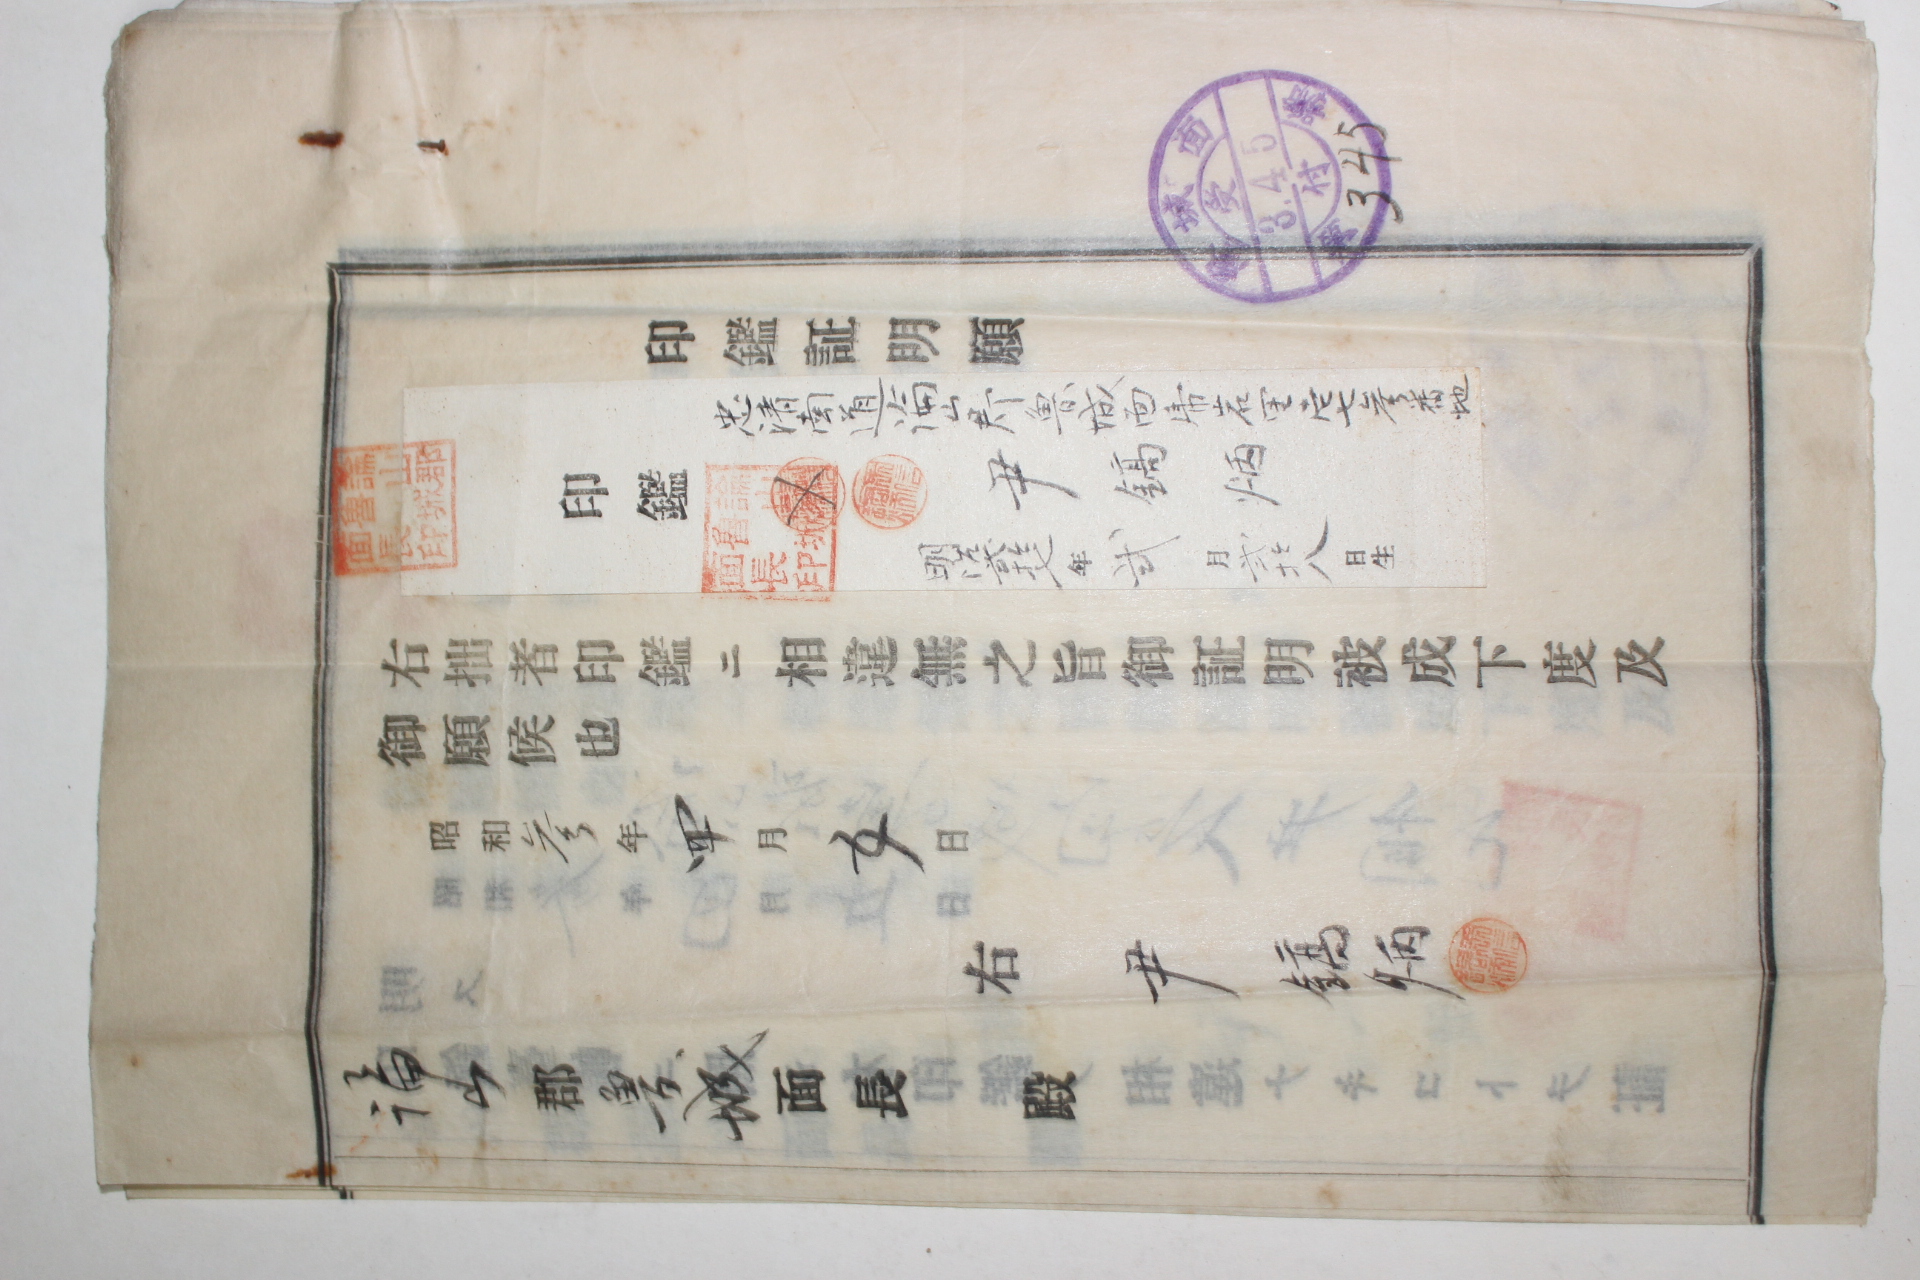 印鑑証明願
忠清南道論山郡魯城面帚岩里壱七參番地
印鑑
尹鎬炳
明治弐拾七年弐月弐拾八日生
論山郡
魯城
面長印
論山郡
魯城
面長印
右拙者印鑑ニ相違無之旨御証明被成下度及
御願候也
昭和參年四月五日
右 尹鎬炳
論山郡魯城面長殿
魯城面
受
3.4.5
付
345